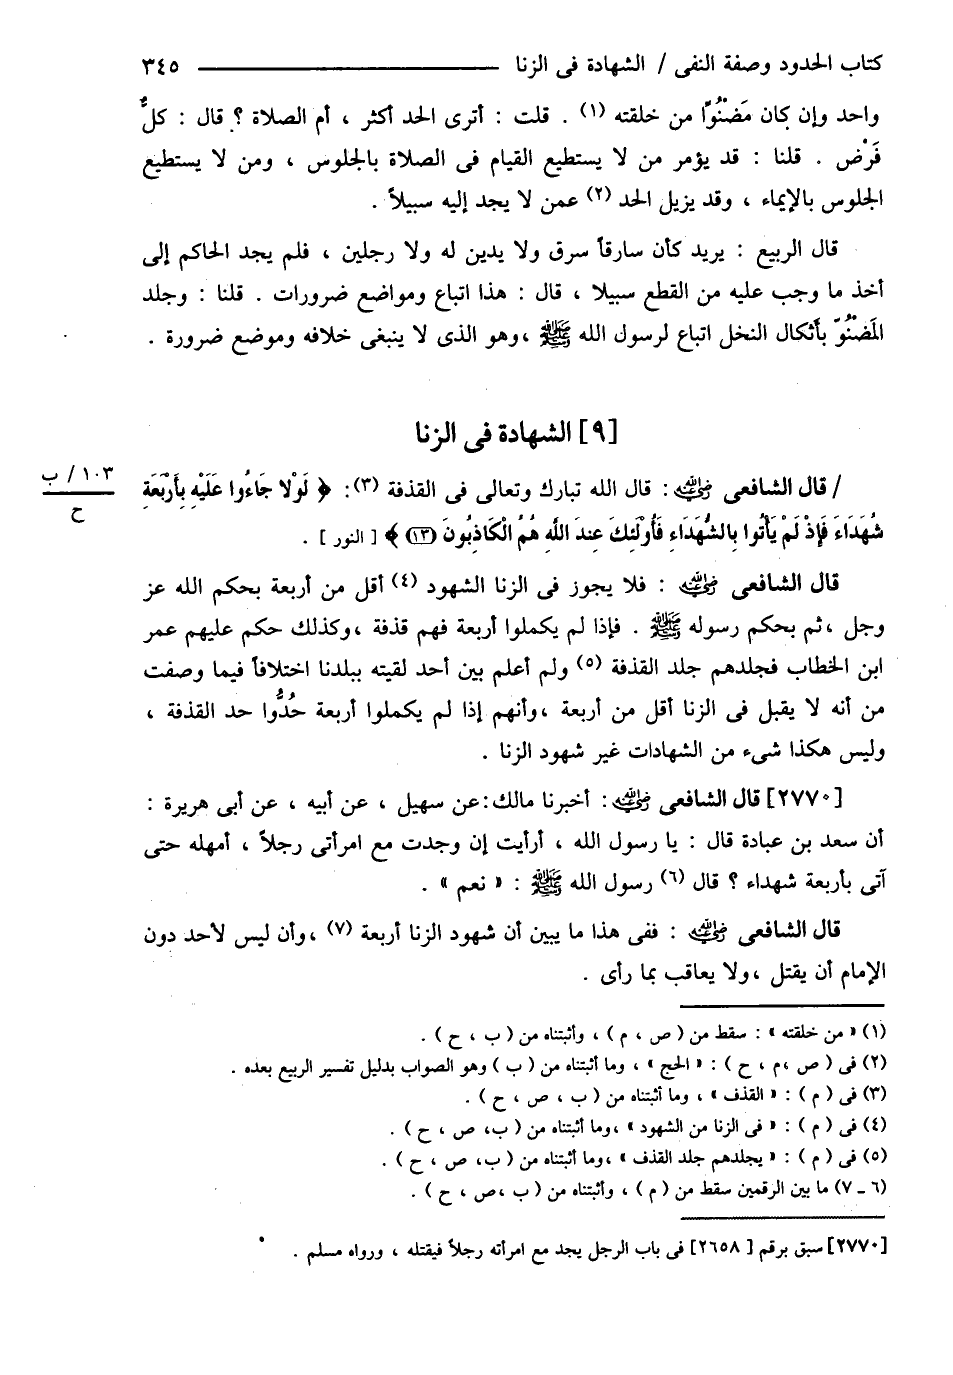 كتاب الحدود وصفة النفى / الشهادة فى الزنا ٣٤٥
واحد وإن كان مَضْنُوًّا من خلقته (١) . قلت : أترى الحد أكثر ، أم الصلاة ؟ قال : كلٌّ
فَرْض . قلنا : قد يؤمر من لا يستطيع القيام فى الصلاة بالجلوس ، ومن لا يستطيع
الجلوس بالإيماء ، وقد يزيل الحد (٢) عمن لا يجد إليه سبيلاً .
قال الربيع : يريد كأن سارقاً سرق ولا يدين له ولا رجلين ، فلم يجد الحاكم إلى
أخذ ما وجب عليه من القطع سبيلا ، قال : هذا اتباع ومواضع ضرورات . قلنا : وجلد
المَضْنُوّ بأثكال النخل اتباع لرسول الله ﷺ ،وهو الذى لا ينبغى خلافه وموضع ضرورة .
[٩] الشهادة فى الزنا
١٠٣ / ب
ح
/ قال الشافعى رضي الله عنه : قال الله تبارك وتعالى فى القذفة (٣): ﴿ لَوْلا جَاءُوا عَلَيْهِ بِأَرْبَعَةِ
شُهَدَاءَ فَإِذْ لَمْ يَأْتُوا بِالشُّهَدَاءِ فَأُوْلَئِكَ عِندَ اللَّهِ هُمُ الْكَاذِبُونَ (١٣) ﴾ [ النور ] .
قال الشافعى رضي الله عنه : فلا يجوز فى الزنا الشهود (٤) أقل من أربعة بحكم الله عز
وجل ،ثم بحكم رسوله ﷺ . فإذا لم يكملوا أربعة فهم قذفة ،وكذلك حكم عليهم عمر
ابن الخطاب فجلدهم جلد القذفة (٥) ولم أعلم بين أحد لقيته ببلدنا اختلافاً فيما وصفت
من أنه لا يقبل فى الزنا أقل من أربعة ،وأنهم إذا لم يكملوا أربعة حُدُّوا حد القذفة ،
وليس هكذا شىء من الشهادات غير شهود الزنا .
[٢٧٧٠] قال الشافعى رضي الله عنه : أخبرنا مالك:عن سهيل ، عن أبيه ، عن أبى هريرة :
أن سعد بن عبادة قال : يا رسول الله ، أرأيت إن وجدت مع امرأتى رجلاً ، أمهله حتى
آتى بأربعة شهداء ؟ قال (٦) رسول الله ﷺ : « نعم » .
قال الشافعى رضي الله عنه : ففى هذا ما يبين أن شهود الزنا أربعة (٧) ،وأن ليس لأحد دون
الإمام أن يقتل ،ولا يعاقب بما رأى .
(١) « من خلقته » : سقط من ( ص ، م ) ، وأثبتناه من ( ب ، ح ) .
(٢) فى ( ص ،م ، ح ) : « الحج » ، وما أثبتناه من ( ب ) وهو الصواب بدليل تفسير الربيع بعده .
(٣) فى ( م ) : « القذف » ، وما أثبتناه من ( ب ، ص ، ح ) .
(٤) فى ( م ) : « فى الزنا من الشهود » ،وما أثبتناه من ( ب، ص ، ح ) .
(٥) فى ( م ) : « يجلدهم جلد القذف » ،وما أثبتناه من ( ب، ص ، ح ) .
(٦ ـ ٧) ما بين الرقمين سقط من ( م ) ، وأثبتناه من ( ب ،ص ، ح ) .
[٢٧٧٠] سبق برقم [ ٢٦٥٨] فى باب الرجل يجد مع امرأته رجلاً فيقتله ، ورواه مسلم .